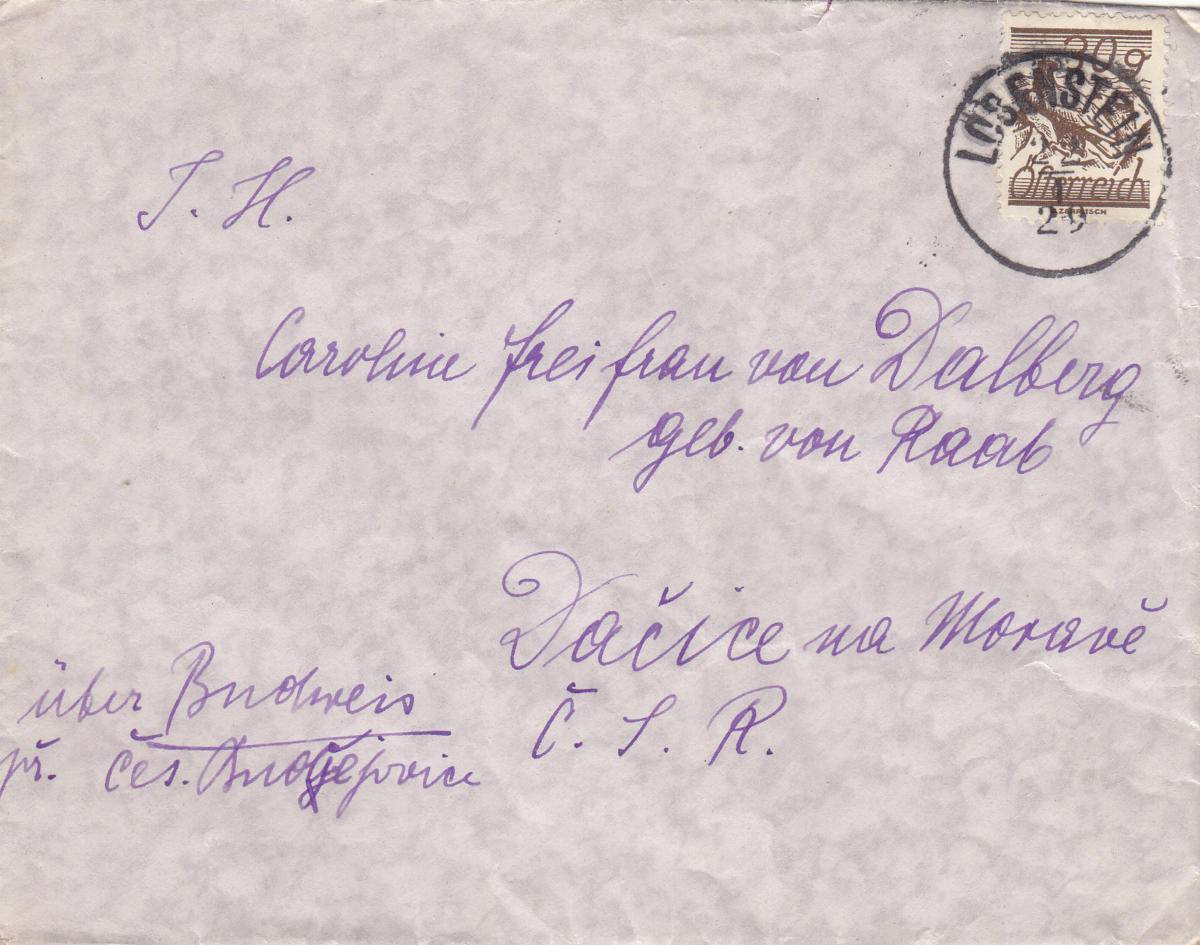 30 g
LOSENSTEIN
I
29
Österreich
I. H.
Caroline Freifrau von Dalberg
geb. von Raab
Dačice na Moravě
Č. S. R.
über Budweis
př. Čes. Budějovice